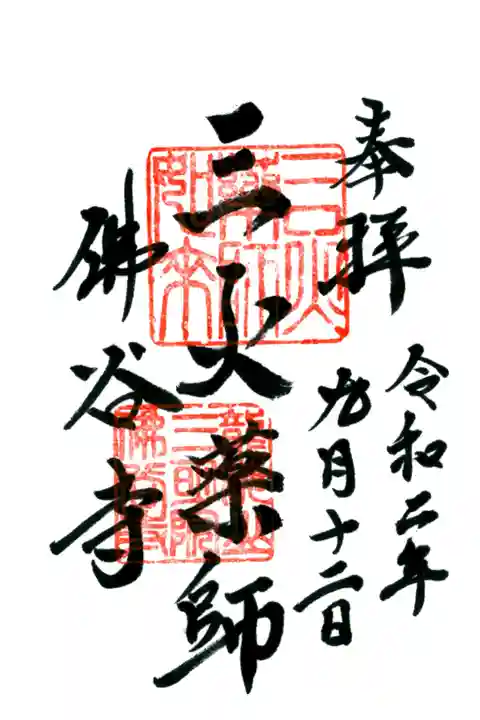 奉拝
令和二年
九月十二日
三火薬師
佛谷寺